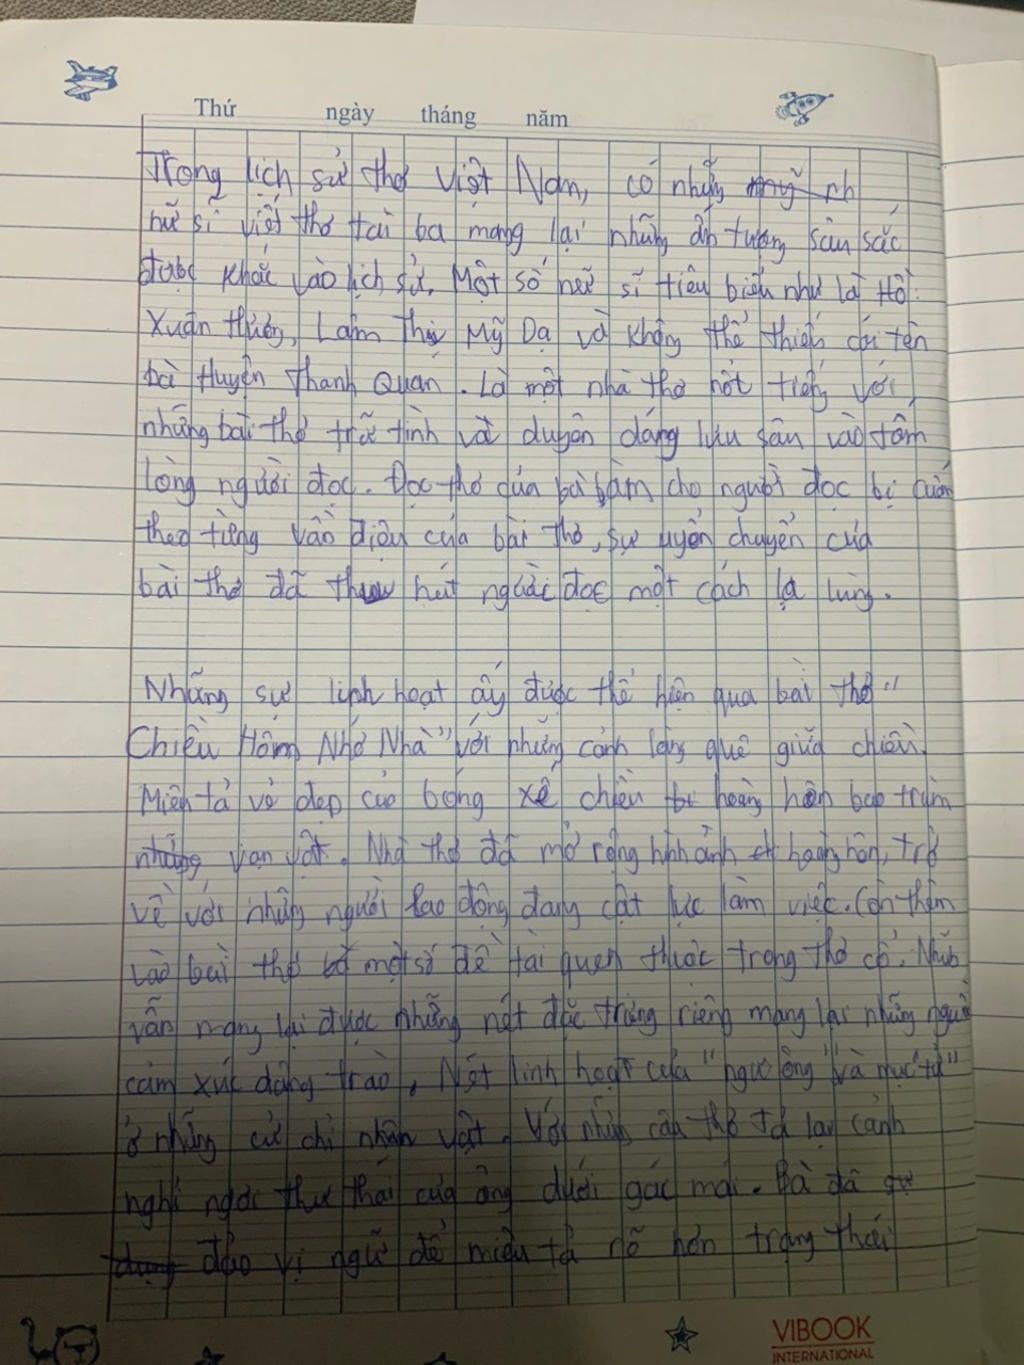 Thứ ngày tháng năm
Trong lịch sử thơ Việt Nam, có những
nữ sĩ viết thơ tài ba mang lại những ấn tượng sâu sắc
được khắc vào lịch sử. Một số nữ sĩ tiêu biểu như là Hồ
Xuân Hương, Lâm Thị Mỹ Dạ và không thể thiếu cái tên
bà Huyện Thanh Quan. Là một nhà thơ nổi tiếng với
những bài thơ trữ tình và duyên dáng lưu sâu vào tâm
lòng người đọc. Đọc thơ của bà làm cho người đọc bị cuốn
theo từng vần điệu của bài thơ, sự uyển chuyển của
bài thơ đã thu hút người đọc một cách lạ lùng.
Những sự linh hoạt ấy được thể hiện qua bài thơ "
Chiều Hôm Nhớ Nhà" với những cảnh làng quê giữa chiều.
Miên tả vẻ đẹp của bóng xế chiều hoàng hôn bao trùm
vạn vật. Nhà thơ đã mở rộng hình ảnh hoàng hôn, trở
về với những người lao động đang cật lực làm việc. Còn thêm
vào bài thơ một số đề tài quen thuộc trong thơ cổ. Nhưng
vẫn mang lại được những nét đặc trưng riêng mang lại những nguồn
cảm xúc dâng trào. Nét linh hoạt của "ngư ông" và mục tử"
ở những cử chỉ nhân vật. Với những câu thơ tả lại cảnh
nghỉ ngơi thư thái của ông dưới gác mái. Bà đã
đảo vị ngữ để miêu tả rõ hơn trạng thái
VIBOOK
INTERNATIONAL